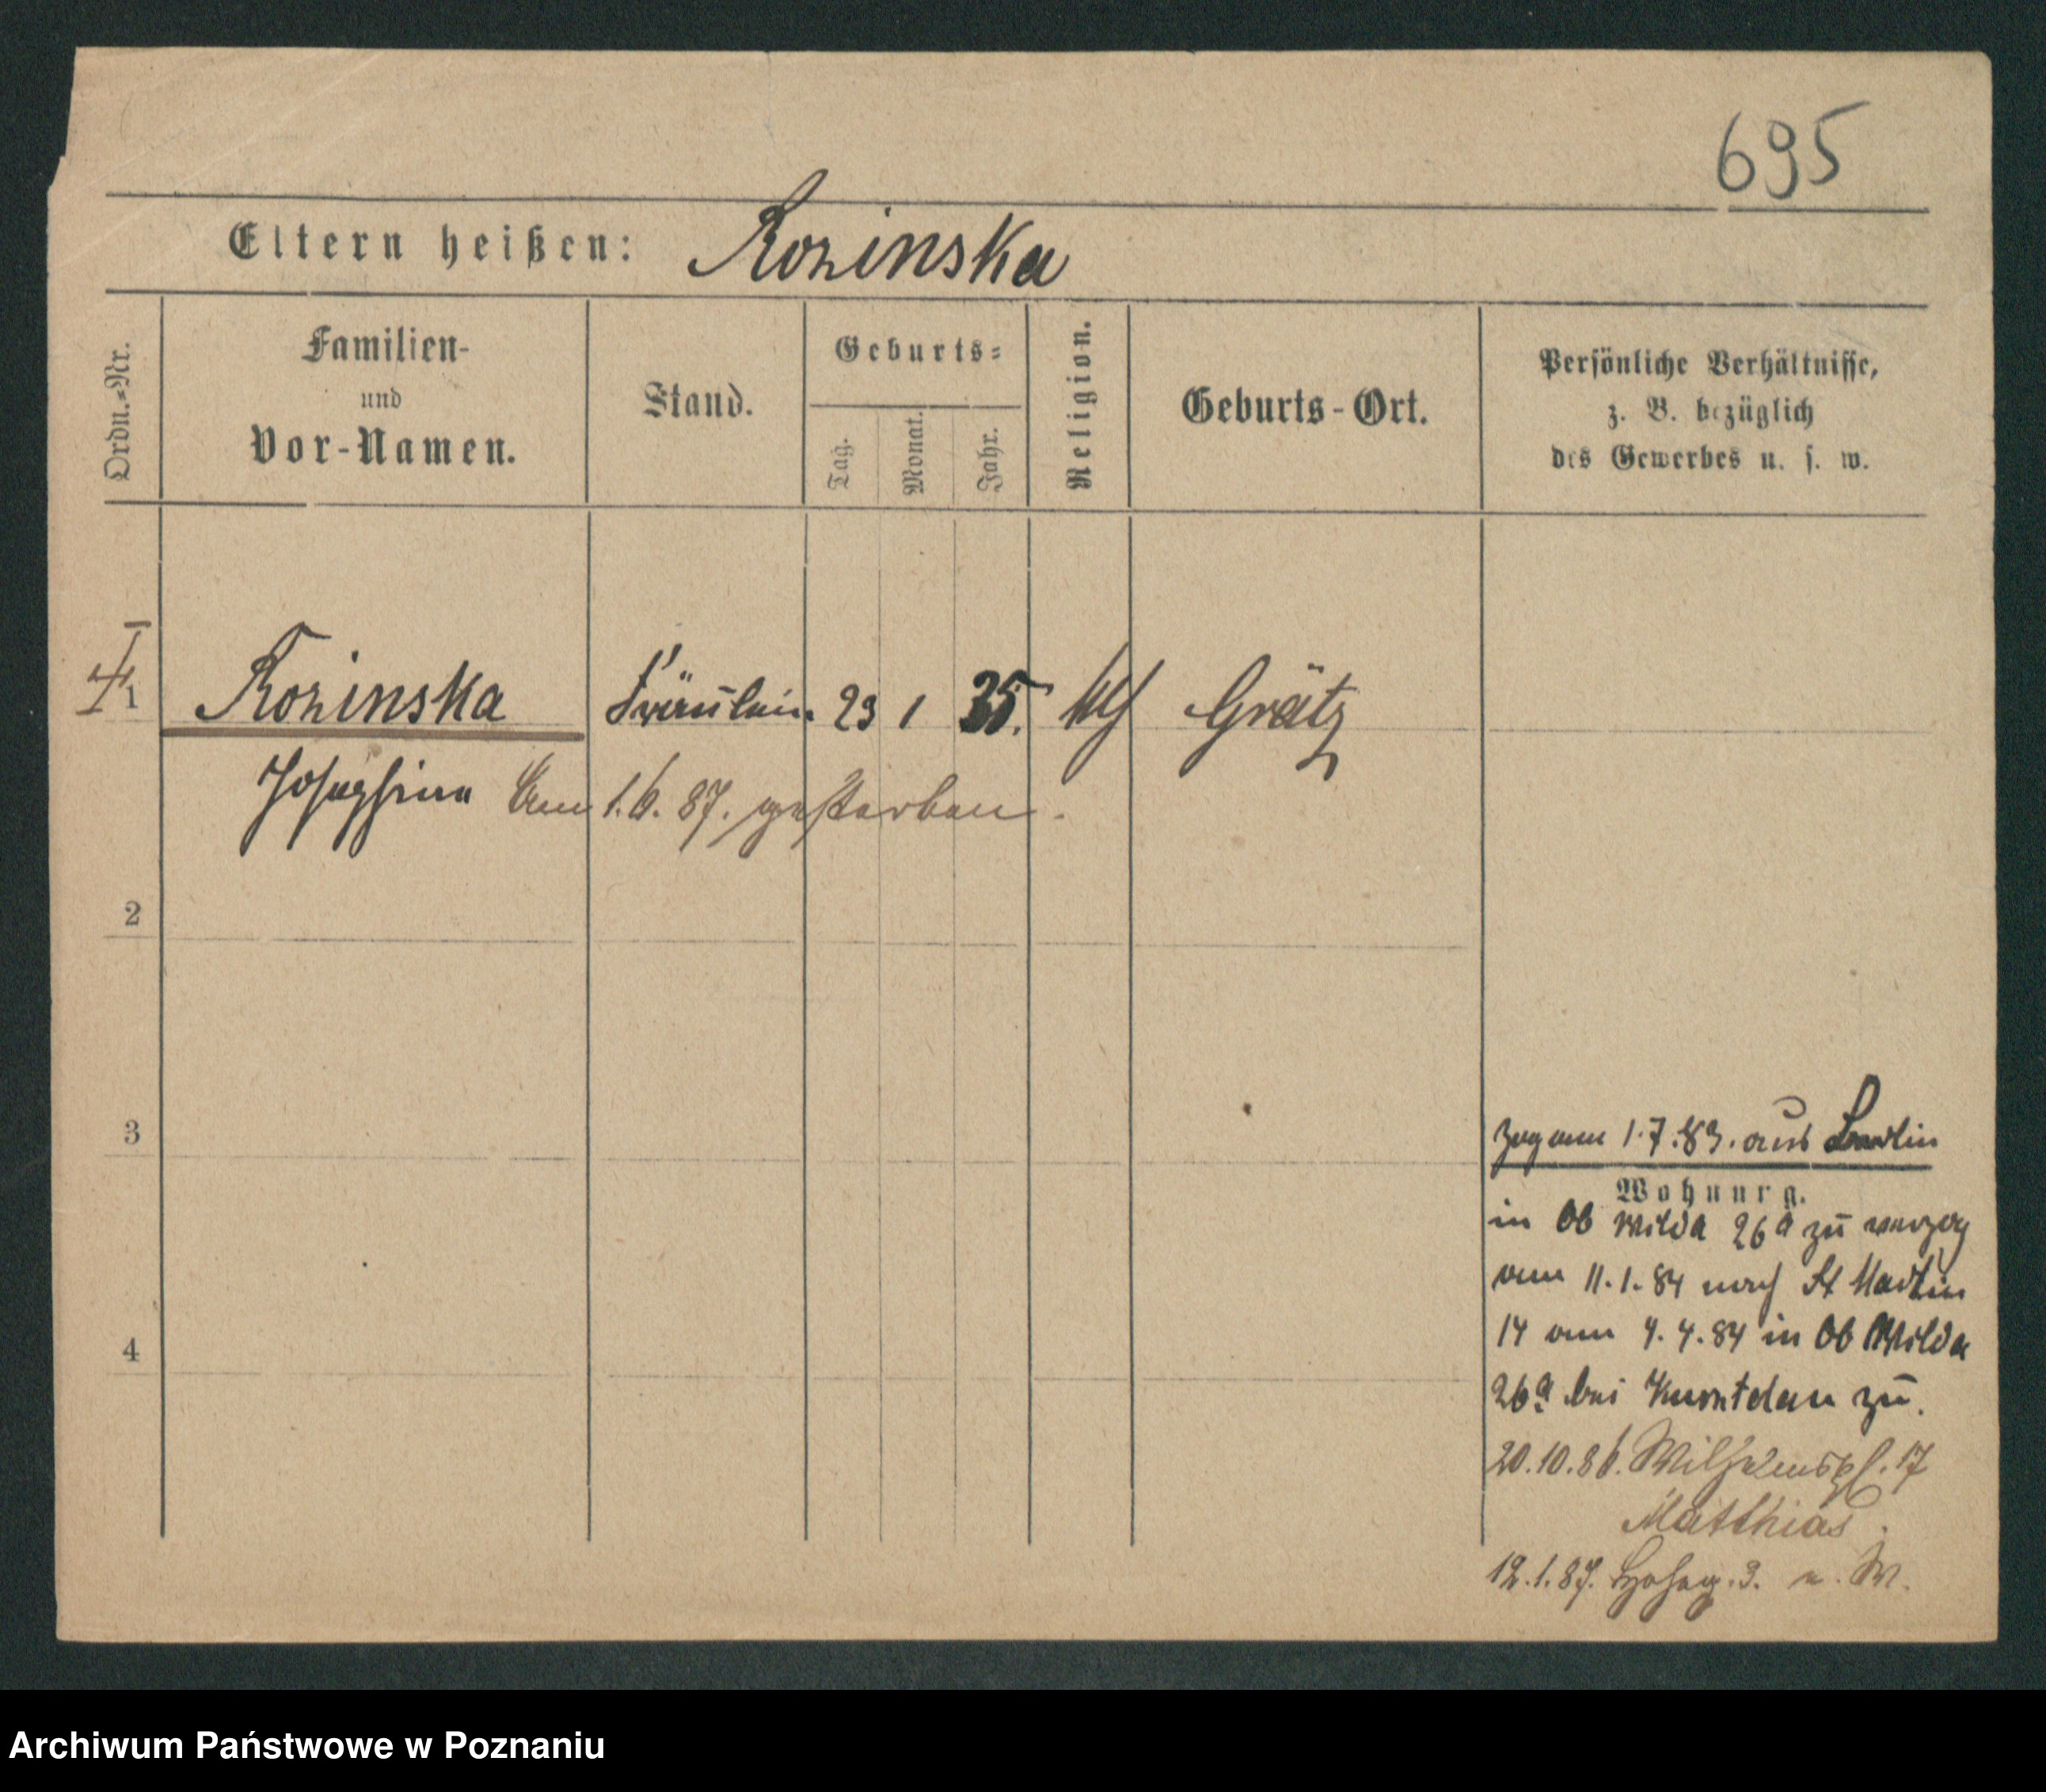 695
Eltern heißen: Rozinska
Ordn.-Nr.
Familien-
und
Vor-Namen.
Stand.
Geburts-
Tag.
Monat.
Jahr.
Religion.
Geburts-Ort.
Persönliche Verhältnisse,
z. B. bezüglich
des Gewerbes u. s. w.
1 Rozinska Fräulein 23 1 35. Grätz
Josephine Am 1.6.87. gestorben.
2
3
zog am 1.7.83. aus Berlin
Wohnung.
in Ob Wilda 26a zu verzog
am 11.1.84 nach St Martin
14 am 4.4.84 in Ob Wilda
4
26a bei zu.
20.10.86. Wilhelmspl. 17
Matthias.
12.1.87. 3. W.
Archiwum Państwowe w Poznaniu